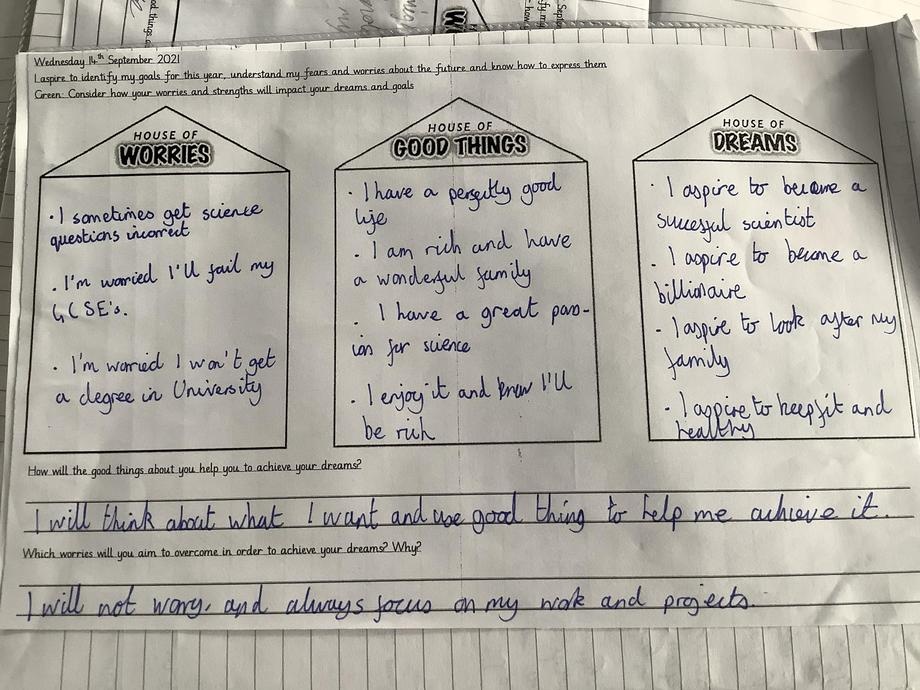 Wednesday 14th September 2021
I aspire to identify my goals for this year, understand my fears and worries about the future and know how to express them
Green: Consider how your worries and strengths will impact your dreams and goals
HOUSE OF
WORRIES
· I sometimes get science
questions incorrect
. I'm worried I'll fail my
GCSE's.
. I'm worried I won't get
a degree in University
HOUSE OF
GOOD THINGS
· I have a perfectly good
life
. I am rich and have
a wonderful family
. I have a great pass-
ion for science
. I enjoy it and know I'll
be rich
HOUSE OF
DREAMS
· I aspire to become a
successful scientist
. I aspire to become a
billionaire
- I aspire to look after my
family
- I aspire to keep fit and
healthy
How will the good things about you help you to achieve your dreams?
I will think about what I want and use good thing to help me achieve it.
Which worries will you aim to overcome in order to achieve your dreams? Why?
I will not worry, and always focus on my work and projects.